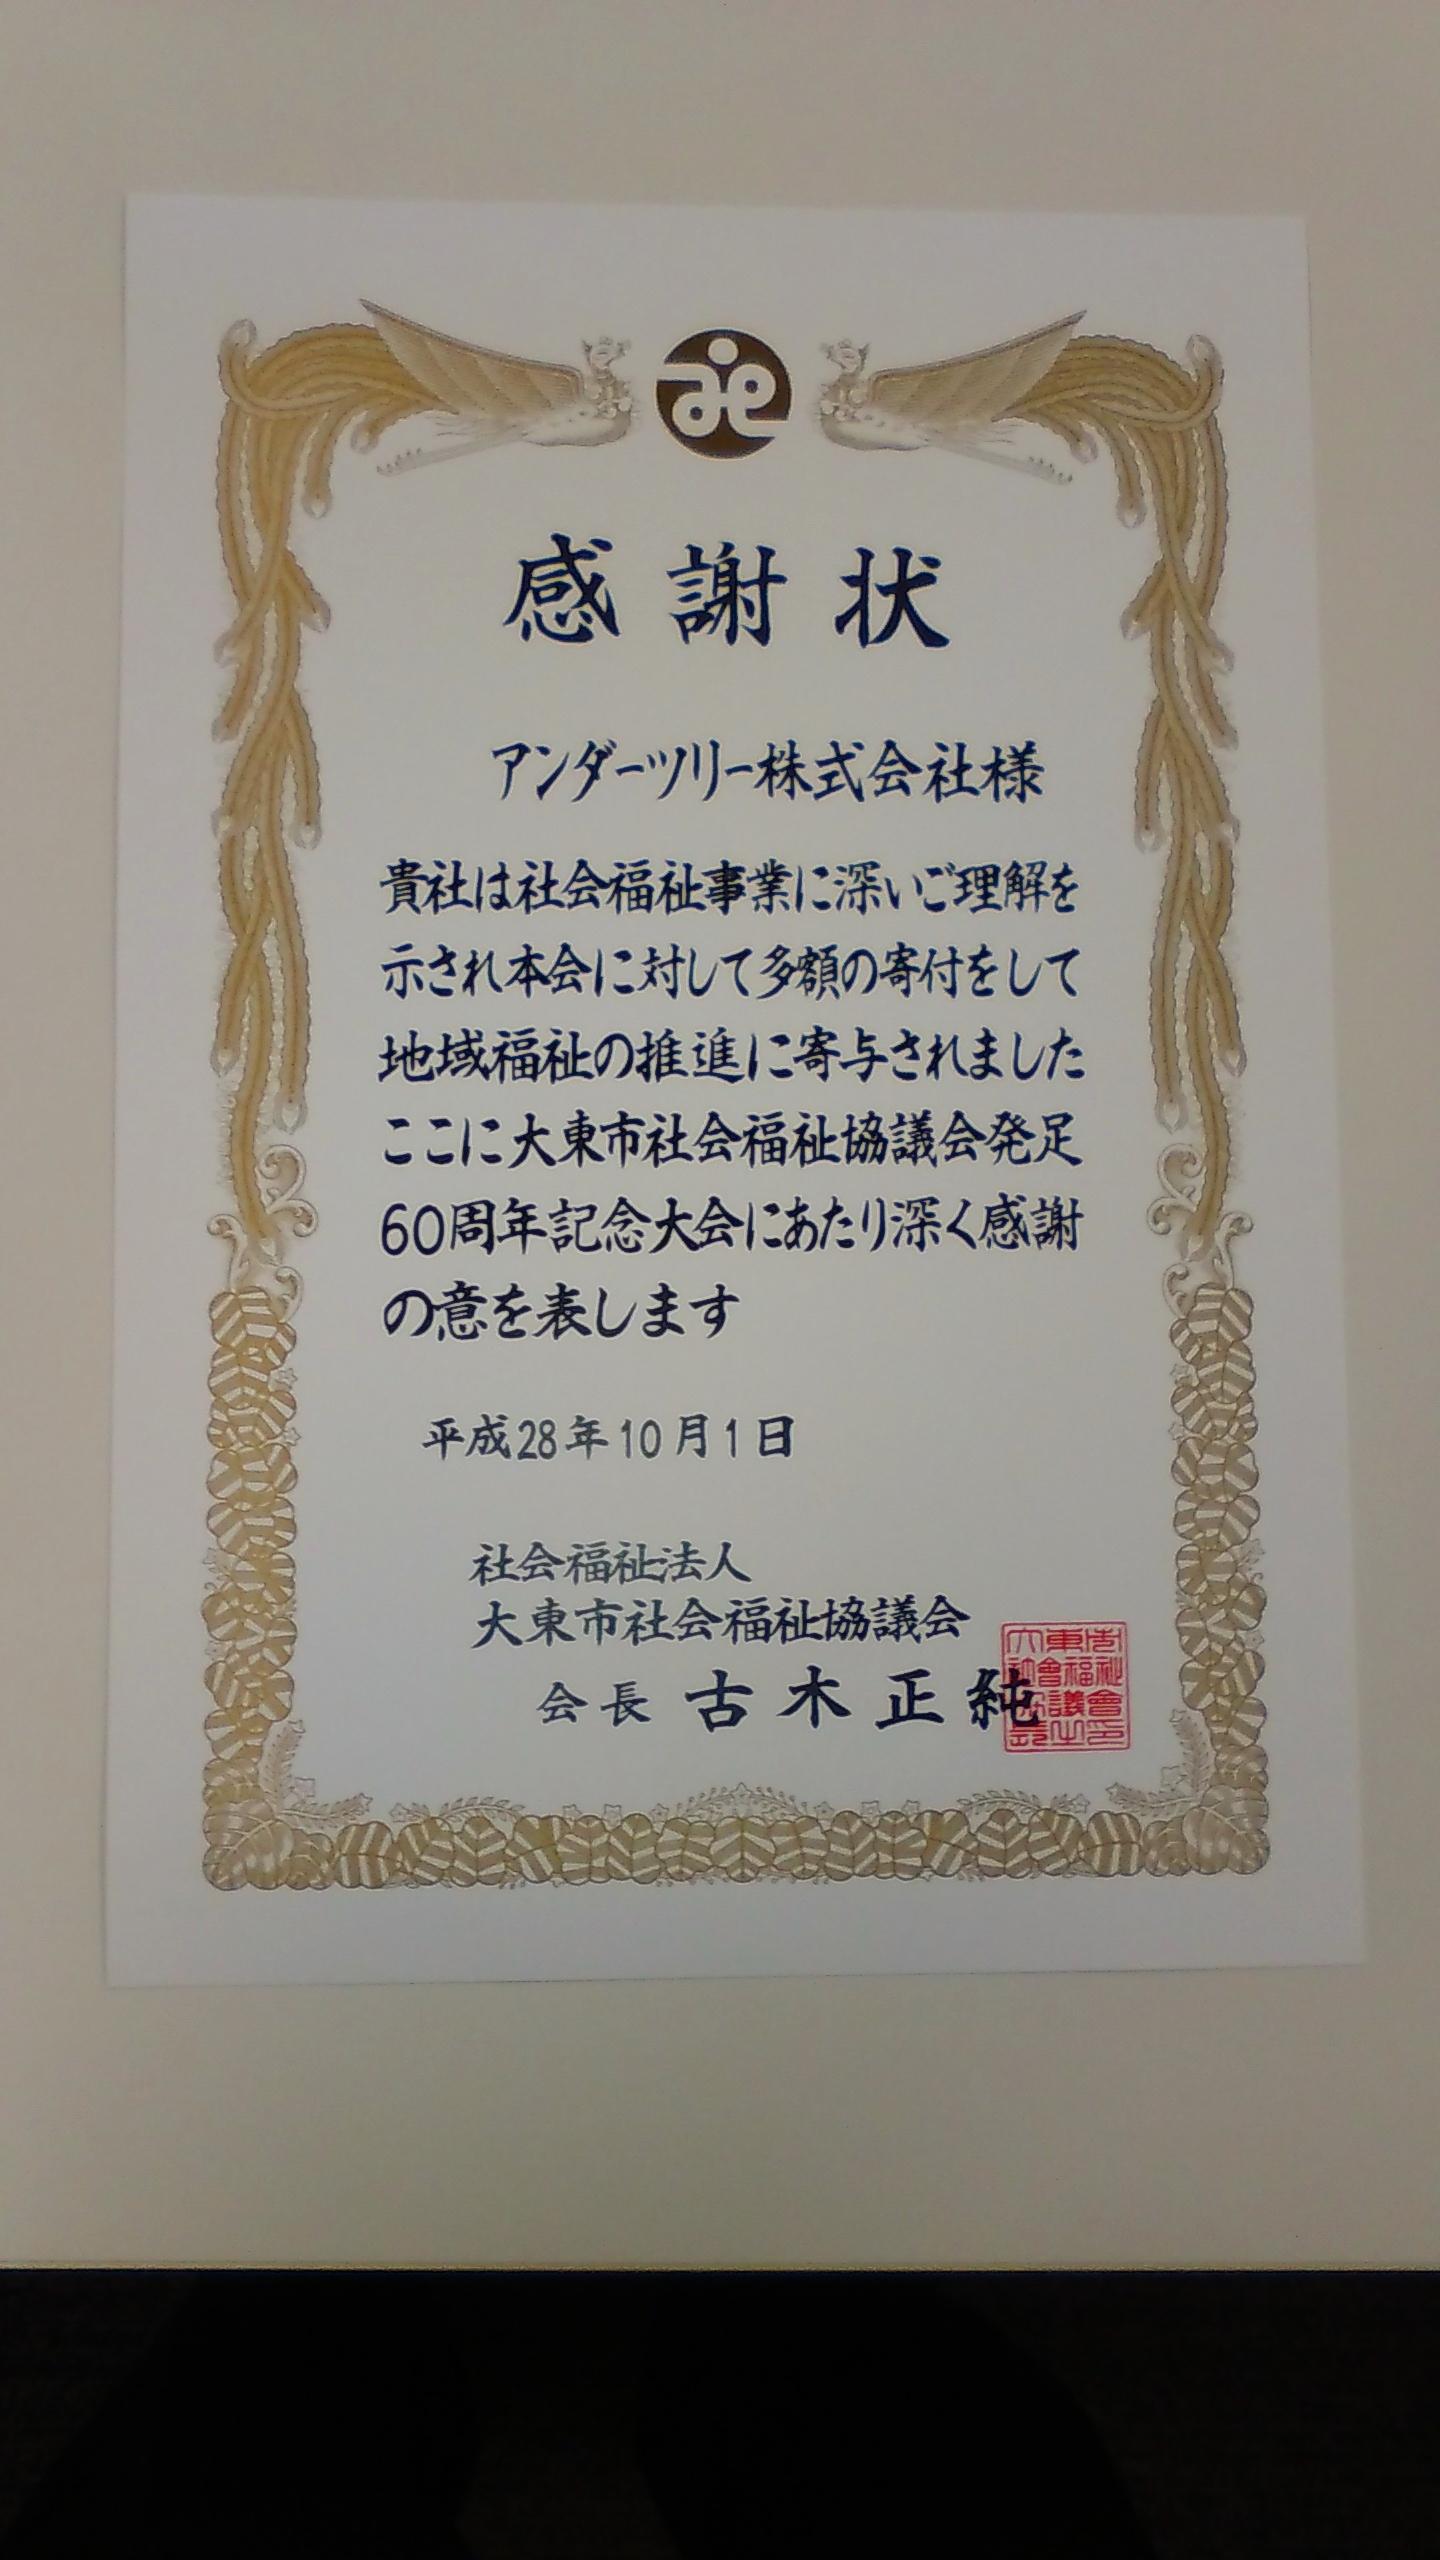 感謝状
アンダーツリー株式会社様
貴社は社会福祉事業に深いご理解を
示され本会に対して多額の寄付をして
地域福祉の推進に寄与されました
ここに大東市社会福祉協議会発足
60周年記念大会にあたり深く感謝
の意を表します
平成28年10月1日
社会福祉法人
大東市社会福祉協議会
会長 古木正純